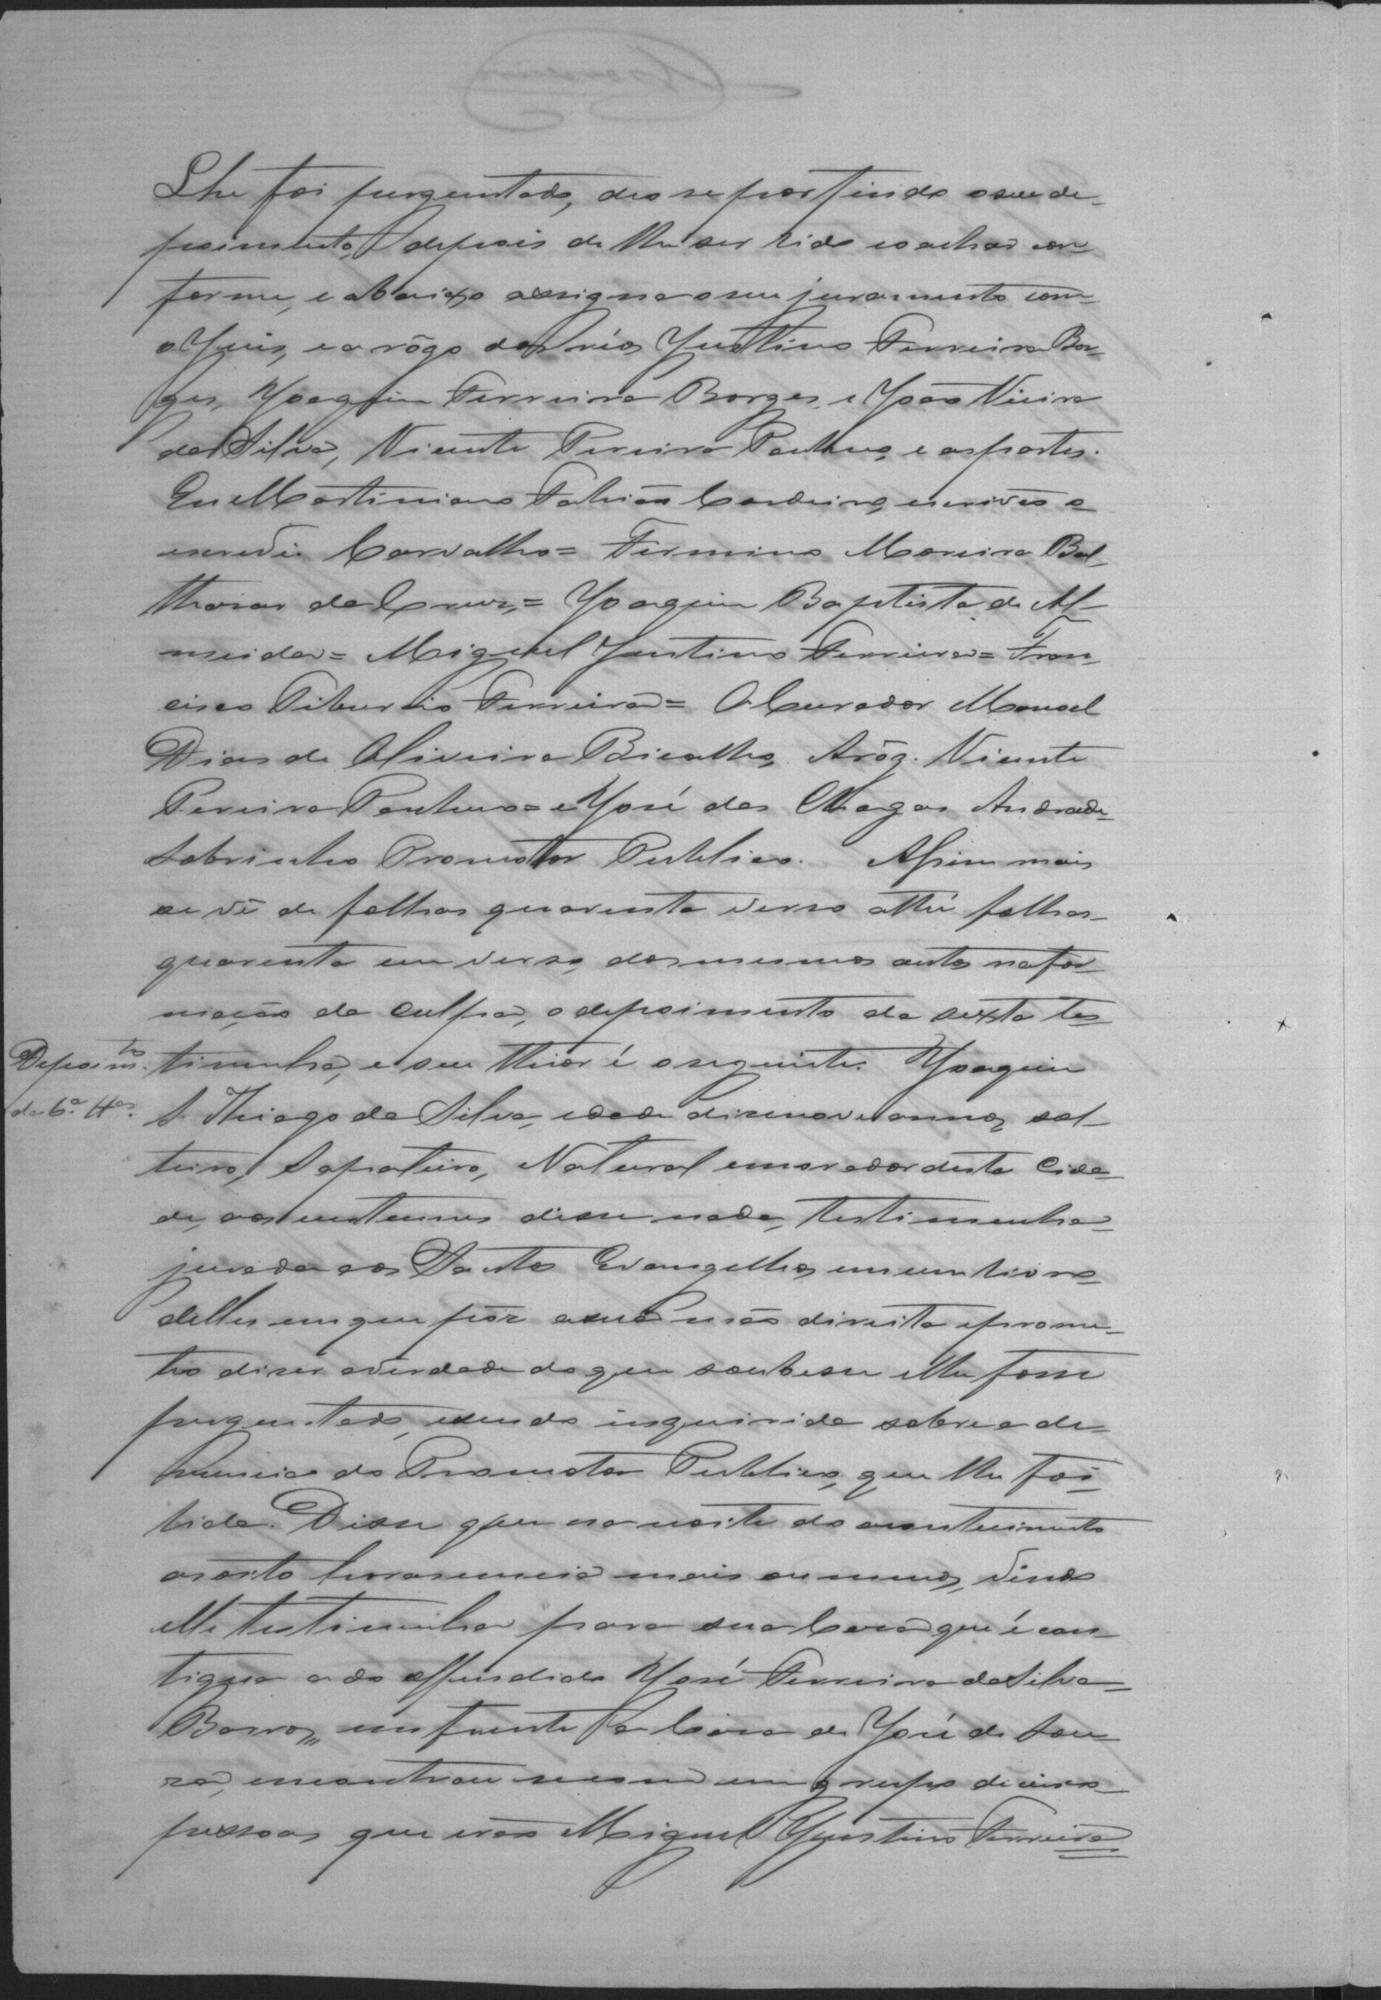 Lhe foi perguntado, deo se por findo o seu de-
poimento, depois de lhe ser lido eo achar con-
forme, e abaixo assigna o seu juramento com
o Juis, e a rôgo dos réos Justino Ferreira Bor-
ges, Joaquim Ferreira Borges, e João Vieira
da Silva, Vicente Pereira Pantuso, e as partes.
Eu Martiniano Fabião Cordeiro, escrivão o
escrevi Carvalho = Firmino Moreira Bal-
thasar da Crus, = Joaquim Baptista de Al-
meida = Miguel Justino Ferreira = Fran-
cisco Tiburcio Ferreira = O Curador Manoel
Dias de Oliveira Bicalho, Arôg. Vicente
Pereira Pantuso = e José das Chagas Andrade
Sobrinho Promotor Publico. Assim mais
se vê de folhas quarenta verso athé folhas
quarenta em verso, dos mesmos autos na for-
mação da culpa, o depoimento da sexta tes-
Depoim.to timunha, e seu theor é o seguinte. Joaquim
da 6.a tt.as S. Thiago da Silva, edade disenove annos, sol-
teiro, Sapateiro, Natural e morador desta Cida-
de, aos custumes disse nada, testimunha
jurada aos Santos Evangelhos em um livro
delles em que pôz a sua mão direita e prome-
teo diser a verdade do que soubesse e lhe fosse
perguntado, e sendo inquirida sobre a de-
nuncia do Promotor Publico, que lhe foi
lida. Disse que na noite do acontecimento
as oito horas e meia mais ou menos, vindo
elle testimunha para sua Casa que é con-
tigua a do offendido José Ferreira da Silva
Barros, em frente a Casa de José de Sou-
za, encontrou nessa um grupo de cinco
pessoas que erão Miguel Justino Ferreira